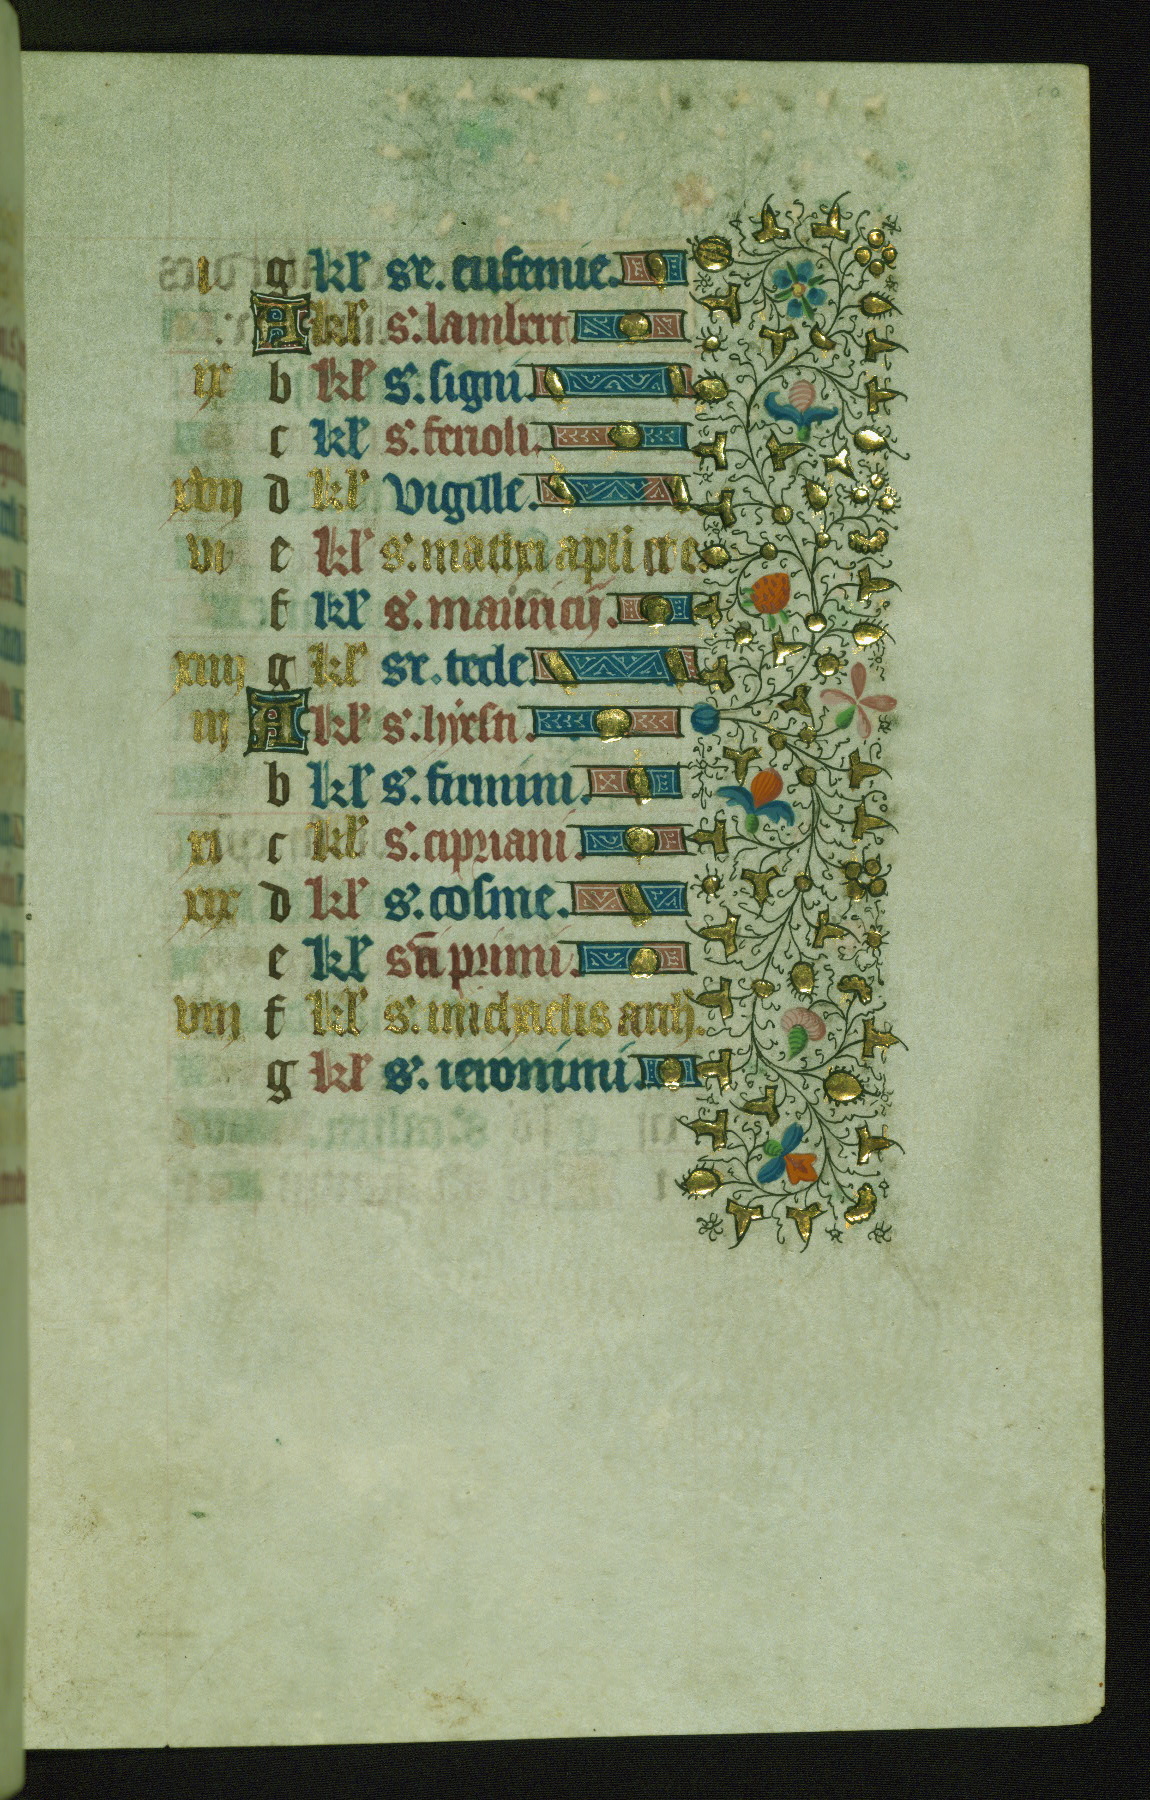 i g kl' se. eufemie.
A kl' s'. lambert
ix b kl' s'. signi.
c kl' s'. ferioli.
xvii d kl' vigille.
vi e kl' s'. mathei apli et e.
f kl' s'. mauricij.
xiiii g kl' se. tecle.
iii A kl' s'.
b kl' s'. firmini.
xi c kl' s'. cipriani.
xix d kl' s'. cosme.
e kl' sti primi.
viii f kl' s'. michaelis arch'.
g kl' s'. ieronimi.